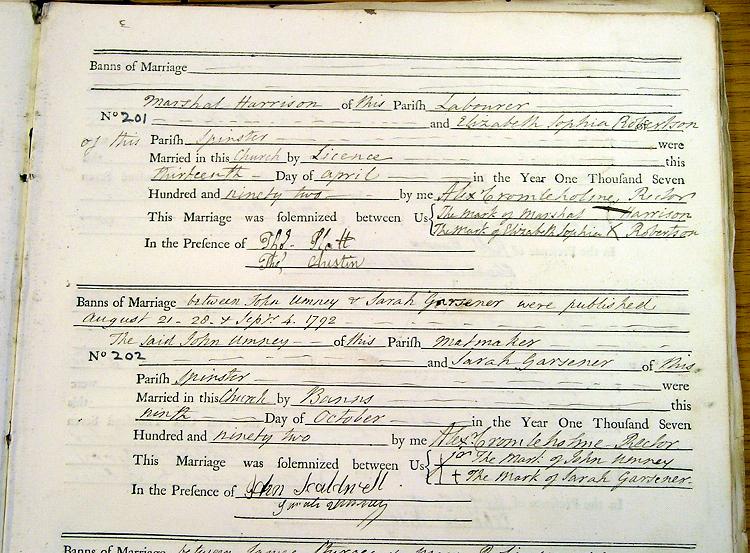 Banns of Marriage
Marshal Harrison of this Parish Labourer
No 201 and Elizabeth Sophia Robertson
of this Parish Spinster were
Married in this Church by Licence this
thirteenth Day of April in the Year One Thousand Seven
Hundred and ninety two by me Alex Cromleholme, Rector
This Marriage was solemnized between Us { The Mark of Marshal Harrison
The Mark of Elizabeth Sophia X Robertson
In the Presence of Thos. Platt
Thos. Austin
Banns of Marriage between John Umney & Sarah Garsener were published
August 21 - 28 - & Septr. 4. 1792
The said John Umney of this Parish matmaker
No 202 and Sarah Garsener of this
Parish Spinster were
Married in this Church by Banns this
ninth Day of October in the Year One Thousand Seven
Hundred and ninety two by me Alex Cromleholme Rector
This Marriage was solemnized between Us { The Mark of John Umney
+ The Mark of Sarah Garsener.
In the Presence of John
Umney
Banns of Marriage between James